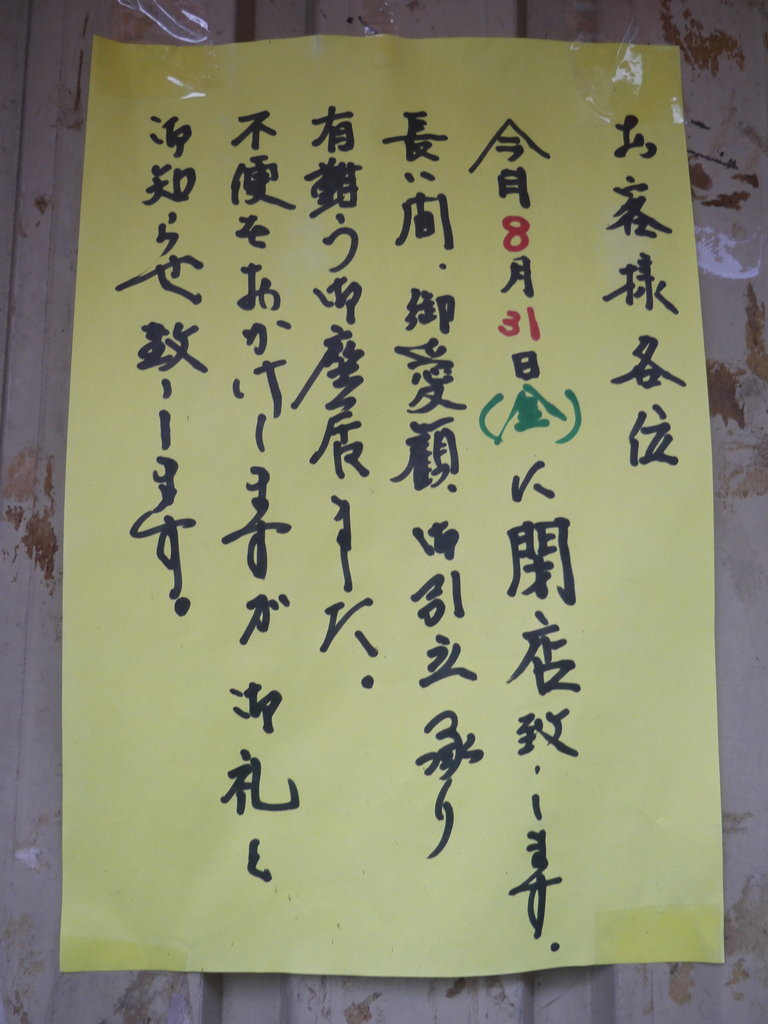 お客様各位
今月8月31日(金)に閉店致します。
長い間、御愛顧、御引立承り
有難う御座居ました。
不便をおかけしますが御礼と
御知らせ致します。